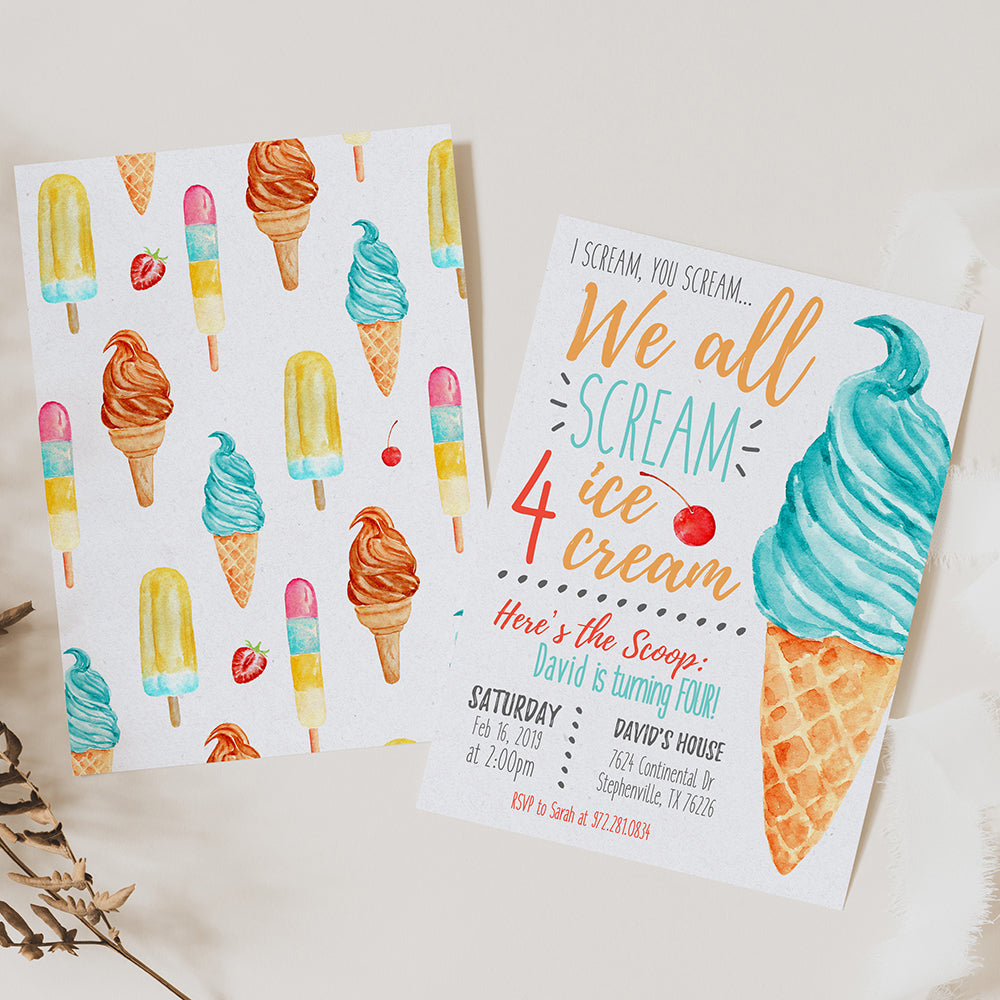 I SCREAM, YOU SCREAM...
We all
SCREAM
4 ice
cream
Here's the Scoop:
David is turning FOUR!
SATURDAY
Feb 16, 2019
at 2:00pm
DAVID'S HOUSE
7624 Continental Dr
Stephenville, TX 76226
RSVP to Sarah at 972.281.0834